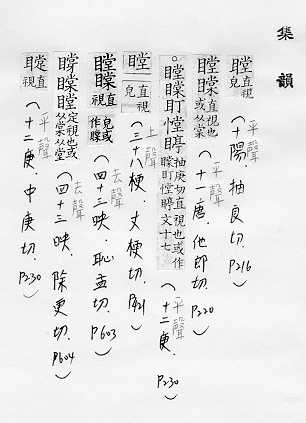 集韻
瞠 直視皃 (平聲 十陽.抽良切.P216)
瞠 直視也或从棠 (平聲 十一唐.他郎切.P220)
。瞠盯憆 抽庚切直視也或作盯憆文十七 (平聲 十二庚.P230)
瞠 直視皃 (上聲 三十八梗.丈梗切.P421)
瞠 直視皃或作 (去聲 四十三映.恥孟切.P603)
瞠 定視也或从棠从堂 (去聲 四十三映.除更切.P604)
瞠 直視 (平聲 十二庚.中庚切.P230)